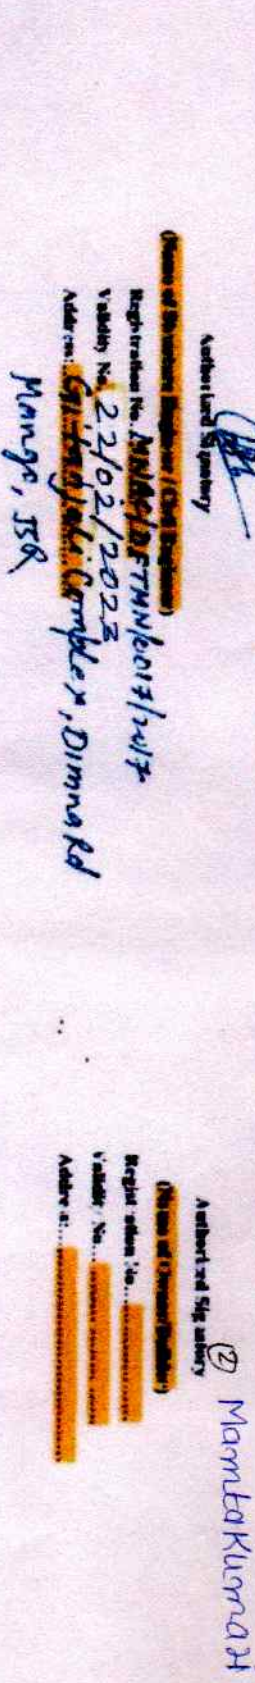 Authorized Signatory
(Name of Structural Engineer / Civil Engineer)
Registration No. MNAC/DEFTMN/E0017/2017
Validity No. 22/02/2023
Address: Gitanjali Complex, Dimna Rd
Mango, JSR
② Mamta Kumari
Authorized Signatory
(Name of Owner/Builder)
Registration No....
Validity No....
Address:....